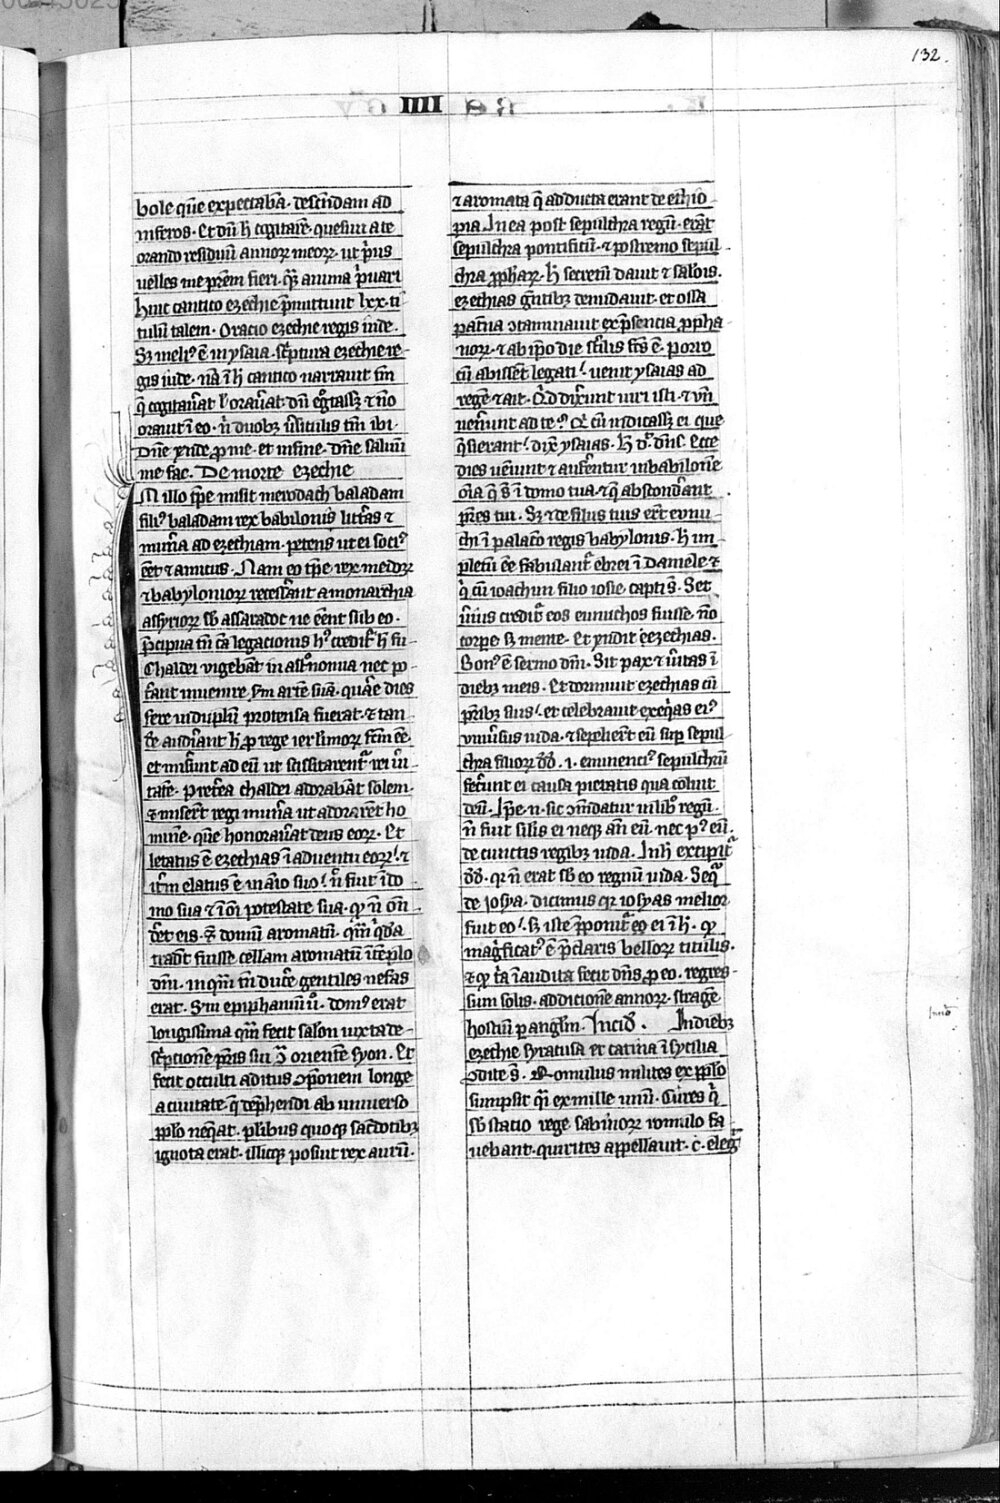 132.
IIII
bole que expectabā. descendam ad
inferos. Et dū h̄ cogitarē. quesiui a te
orando residuū annoꝝ meoꝝ. ut pͥus
uelles me p̄rem fieri. qꝫ anima pͥuari
huic cantico ezechie p̄mittunt lxx. ti
tulū talem. Oracio ezechie regis iude.
Sꝫ melꝰ ē in ysaia. scͥptura ezechie re
gis iude. nā ī h̄ cantico narrauit
q̄ cogitauͣat ł orauͣat. dū egͦtassꝫ ⁊ nō
orauit ī eo. nͥ duobꝫ ūsiculis tm̄ ibi.
Dn̄e r̄nde ꝓ me. et in fine. dn̄e saluū
me fac. De morte ezechie
In illo tp̄e misit merodach baladam
filiꝰ baladam rex babilonis litt̄as ⁊
munͣa ad ezechiam. petens ut ei sociꝰ
eēt ⁊ amicus. Nam eo tp̄e rex medoꝝ
⁊ babylonioꝝ recessͣant a monarchia
assyrioꝝ sb̄ assaradoc ne eēnt sub eo.
p̄cipua tn̄ cā legacionis hꝰ creditͬ h̄ fu
Chaldei vigebāt in astͦnomia nec po
tͣant inuenire sm̄ artē suā. quare dies
fere in duplū protensa fuerat. ⁊ tan
dē audiͣant h̄ ꝓ rege ierl̄imoꝝ fc̄m eē.
et misͣunt ad eū ut scissitarentᷣ rei uͥ
tatē. pret̄ea chaldei adorabāt solem.
⁊ misert̄ regi munͣa ut adorarēt ho
minē. quē honorauͣat deus eoꝝ. Et
letatus ē ezechias ī aduentu eoꝝ. ⁊
itm̄ elatus ē in aīo suo. nͦ fuit ī do
mo sua ⁊ ī oī potestate sua. qͦ n̄ on̄
dēt eis. ⁊ domū aromatū. qm̄ qͥdā
tradūt fuisse cellam aromatū ī tēplo
dn̄i. in qm̄ tn̄ ducͤe gentiles nefas
erat. Sm̄ epiphaniū uͦ. domꝰ erat
longissima qm̄ fecit salon̄ iuxta de
scͥptionē pͣris sui ꝯͣ orientē syon. Et
fecit occulti aditus ꝯpōnem longe
a ciuitate. q̄ dep̄hendi ab uniuerso
pplo neqͥat. plͥibus quoqꝫ sac̄dotibꝫ
ignota erat. illicqꝫ posuit rex aurū.
⁊ aromata q̄ adducta erant de ethio
pia. In ea post sepulchra regū. erāt
sepulchra pontificū. ⁊ postremo sepul
chra ꝓphaꝝ. h̄ secretū dauit ⁊ salōis.
ezechias gͤntibꝫ denudauit. et ossa
patͥna ꝯtaminauit ex p̄sencia ꝓpha
noꝝ. ⁊ ab ip̄o die stͤilis fc̄s ē. Porro
cū abissēt legati. uenit ysaias ad
regē ⁊ ait. Qͥd dixͤunt uiri isti. ⁊ vn̄
uenͤunt ad te? Qͥ cū indicassꝫ ei que
qͥsierant. dix̄ ysaias. h̄ dͭ dn̄s. Ecce
dies ueniunt ⁊ aufͤentur in babilonē
oīa q̄ s̄ ī domo tua. ⁊ q̄ abscondͣunt
pr̄es tui. Sꝫ ⁊ de filiis tuis erūt eunu
chi ī palac̄o regis babylonis. h̄ im
pletū eē fabulantᷣ ebrei ī Daniele ⁊
qͥ cū ioachim filio iosie. capti s̄. Set
uͥius creditᷣ eos eunuchos fuisse. nō
corpe sꝫ mente. Et r̄ndit ezechias.
Bonꝰ ē sermo dn̄i. Sit pax ⁊ uͥitas ī
diebꝫ meis. Et dormiuit ezechias cū
pr̄ibꝫ suis. et celebrauit exeq̄as eiꝰ
vniūsus iuda. ⁊ sepelierūt eū sup̄ sepul
chra filioꝝ dd̄. .i. eminenciꝰ sepulchrū
fecͤunt ei causa pietatis qua coluit
deū. Ip̄e .n. sic ꝯmēdatur in libͦ regū.
n̄ fuit silis ei neqꝫ an̄ eū. nec pꝰ eū.
de cunctis regibꝫ iuda. In h̄ excipitͬ
dd̄. qꝛ n̄ erat sb̄ eo regnū iuda. Sequͣ
de Iosya. dicimus qꝛ iosyas melior
fuit eo. sꝫ iste p̄ponitͬ eo ei ī h̄. qͦ
magͥficatꝰ ē p̄claris belloꝝ titulis.
⁊ qͦ tā īaudita fecit dn̄s ꝓ eo. regres
sum solis. addicionē annoꝝ. stragē
hostiū per angl̄m. Incid̄. In diebꝫ
ezechie syracusa et catina ī sycilia
ꝯdite s̄. Romulus milites ex pplo
sumpsit qͥ ex mille unū. Cures qͥ
sb̄ statio rege sabinoꝝ romulo fa
uebant. quirites appellauit. c. eleḡ